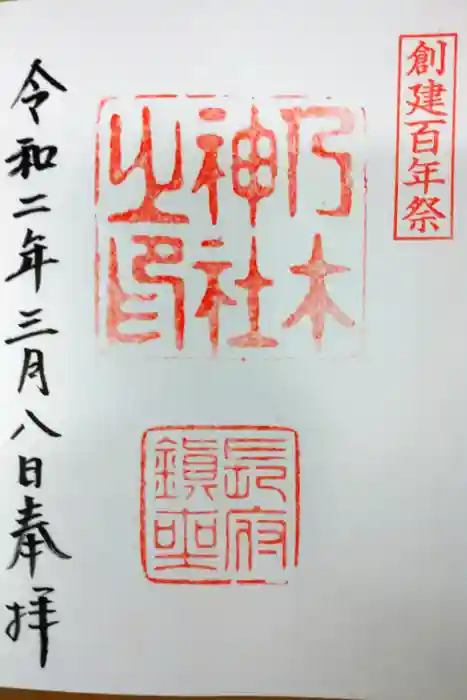 創建百年祭
乃木
神社
之印
長府
鎮座
令和二年三月八日奉拝